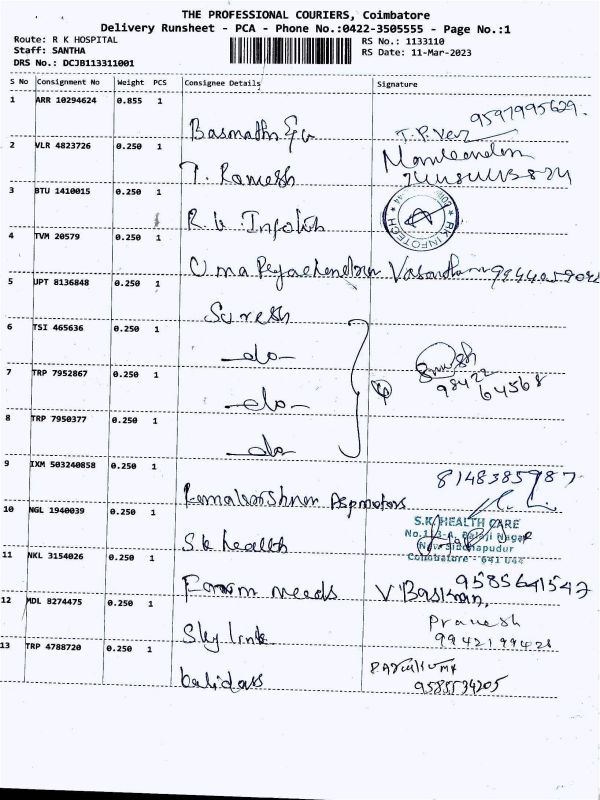 THE PROFESSIONAL COURIERS, Coimbatore
Delivery Runsheet - PCA - Phone No.:0422-3505555 - Page No.:1
Route: R K HOSPITAL
Staff: SANTHA
DRS No.: DCJB113311001
RS No.: 1133110
RS Date: 11-Mar-2023
S No Consignment No Weight PCS Consignee Details Signature
1 ARR 10294624 0.855 1
9597995629.
2 VLR 4823726 0.250 1
T. Ramesh
3 BTU 1410015 0.250 1
R.K Infotech RK INFOTECH
4 TVM 20579 0.250 1
Vasantham
5 UPT 8136848 0.250 1
Suresh
6 TSI 465636 0.250 1
-do-
7 TRP 7952867 0.250 1
-do- 98422 64568
8 TRP 7950377 0.250 1
-do-
9 IXM 503240858 0.250 1
10 NGL 1940039 0.250 1
S.K health S.K HEALTH CARE
New Siddhapudur
Coimbatore - 641 044
11 NKL 3154026 0.250 1
Farm needs V. Baskaran, 9585641547
12 MDL 8274475 0.250 1
Sky link Pravesh
9942199428
13 TRP 4788720 0.250 1
kalidass
9585534205